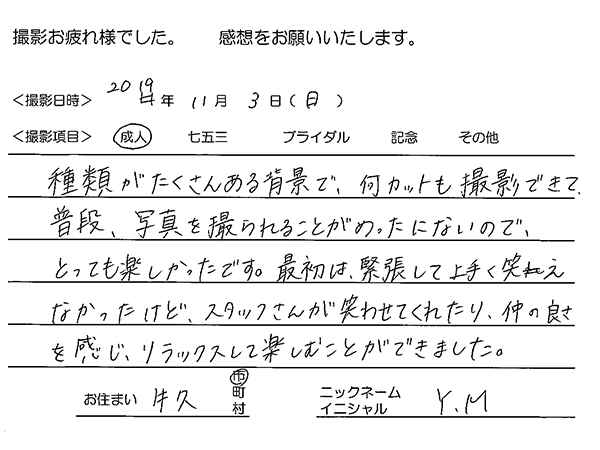 撮影お疲れ様でした。 感想をお願いいたします。
<撮影日時> 2019年 11月 3日(日)
<撮影項目> 成人 七五三 ブライダル 記念 その他
種類がたくさんある背景で、何カットも撮影できて、
普段、写真を撮られることがめったにないので、
とっても楽しかったです。最初は、緊張して上手く笑えれえ
なかったけど、スタッフさんが笑わせてくれたり、仲の良さ
を感じ、リラックスして楽しむことができました。
お住まい 牛久 市町村 ニックネーム イニシャル Y.M